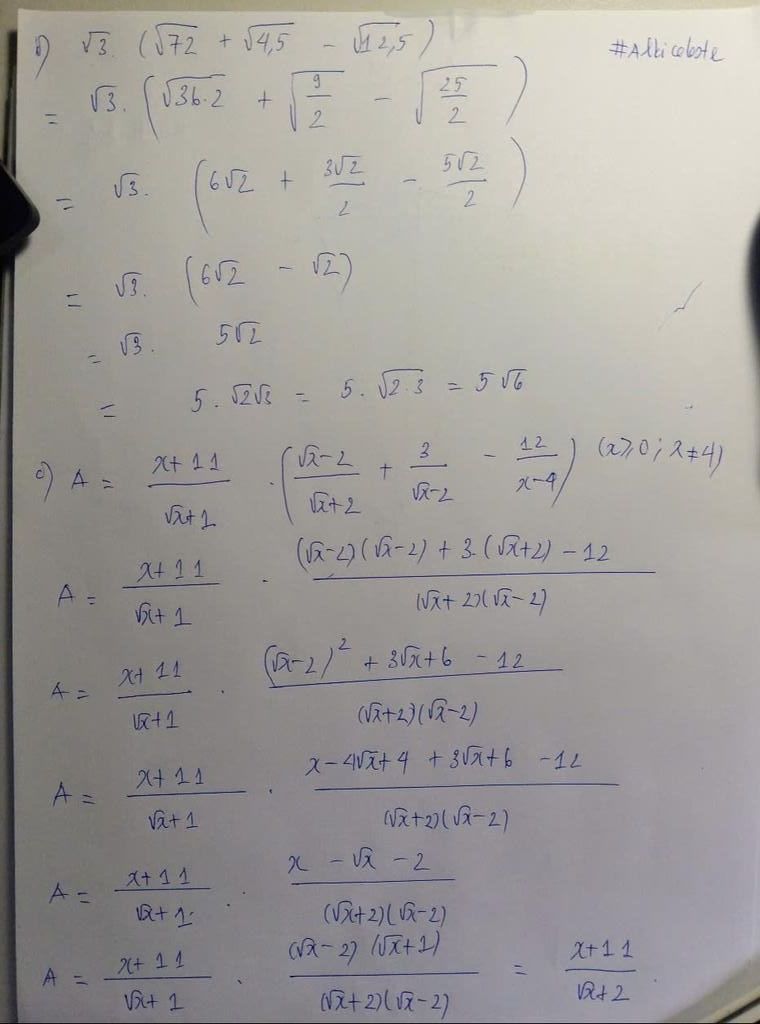 b) √3. (√72 + √4,5 − √12,5) #Albiceleste
= √3. (√36.2 + √(9/2) − √(25/2))
= √3. (6√2 + 3√2/2 − 5√2/2)
= √3. (6√2 − √2)
= √3. 5√2
= 5.√2√3 = 5.√2.3 = 5√6
c) A = (x+11)/(√x+1) . ((√x−2)/(√x+2) + 3/(√x−2) − 12/(x−4)) (x≥0; x≠4)
A = (x+11)/(√x+1) . ((√x−2)(√x−2) + 3.(√x+2) − 12)/((√x+2)(√x−2))
A = (x+11)/(√x+1) . ((√x−2)² + 3√x+6 − 12)/((√x+2)(√x−2))
A = (x+11)/(√x+1) . (x−4√x+4 + 3√x+6 − 12)/((√x+2)(√x−2))
A = (x+11)/(√x+1) . (x − √x − 2)/((√x+2)(√x−2))
A = (x+11)/(√x+1) . ((√x−2)(√x+1))/((√x+2)(√x−2)) = (x+11)/(√x+2)